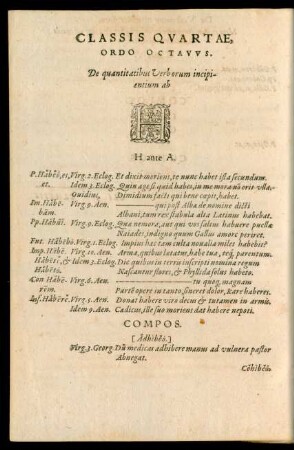 CLASSIS QVARTAE,
ORDO OCTAVVS.
De quantitatibus Verborum incipi-
entium ab
H
H ante A.
P. Hăbĕō, es, Virg. 2. Eclog. Et dixit moriens, te nunc habet ista secundum.
et. Idem 3. Eclog. Quin age, si quid habes, in me mora nō erit vlla.
Ouidius, Dimidium facti qui bene cœpit, habet.
Im. Hăbē- Virg. 9. Aen. qui post Alba de nomine dicti
bām. Albani, tum rex stabula alta Latinus habebat.
Pp. Hăbŭī. Virg. 9. Eclog. Quæ nemora, aut qui vos saltus habuere puellæ
Naiades, indigno quum Gallus amore periret.
Fut. Hăbēbō. Virg. 1. Eclog. Impius hæc tam culta noualia miles habebit?
Imp. Hăbē. Virg. 12. Aen. Arma, quibus lætatus, habe tua, teq; parentum.
Hăbētĕ, & Idem 3. Eclog. Dic quibus in terris inscripti nomina regum
Hăbētō. Nascantur flores, & Phyllida solus habeto.
Con Hăbē- Virg. 6. Aen. tu quoq; magnam
rēm. Partē opere in tanto, sineret dolor, Icare haberes.
Inf. Hăbērĕ. Virg. 5. Aen. Donat habere viro decus & tutamen in armis.
Idem 9. Aen. Cædicus, ille suo moriens dat habere nepoti.
COMPOS.
[Ădhĭbĕō.]
Virg. 3. Georg. Dū medicas adhibere manus ad vulnera pastor
Abnegat.
Cŏhĭbĕō.